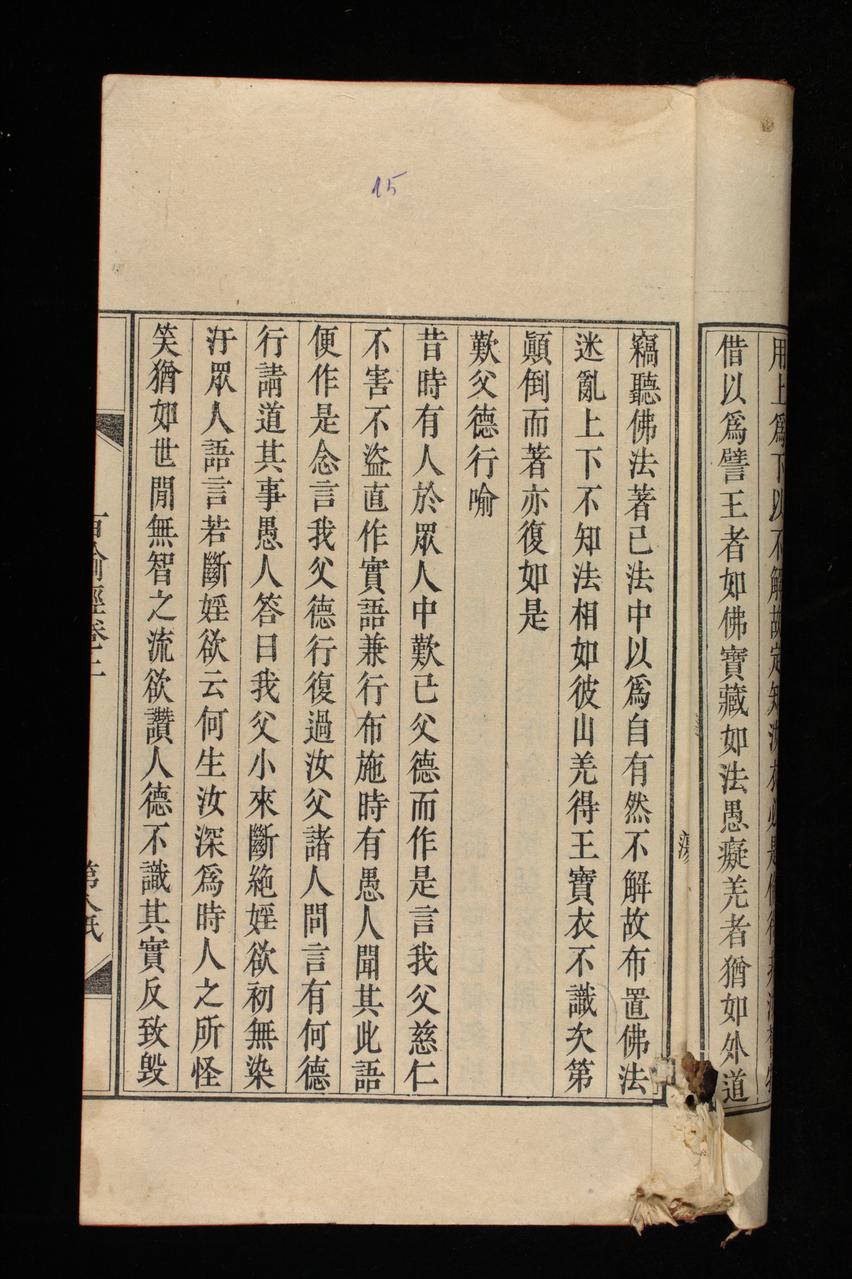 15
用上爲下以不解故定知
借以爲譬王者如佛寶藏如法愚癡羌者猶如外道
竊聽佛法著己法中以爲自有然不解故布置佛法
迷亂上下不知法相如彼山羌得王寶衣不識次第
顛倒而著亦復如是
歎父德行喻
昔時有人於眾人中歎己父德而作是言我父慈仁
不害不盜直作實語兼行布施時有愚人聞其此語
便作是念言我父德行復過汝父諸人問言有何德
行請道其事愚人答曰我父小來斷絶婬欲初無染
汙眾人語言若斷婬欲云何生汝深爲時人之所怪
笑猶如世閒無智之流欲讚人德不識其實反致毀
百喻經卷二